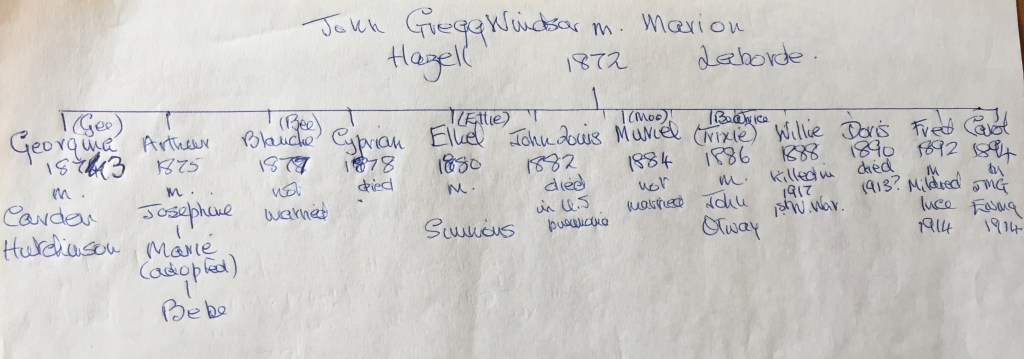 John Gregg Windsor m. Marion
Hazell 1872 Laborde.
(Gee) (Bee) (Ettie) (Moo) Beatrice
Georgina Arthur Blanche Cyprian Ethel John Louis Muriel (Trixie) Willie Doris Fred Carol
1873 1875 1877 1878 1880 1882 1884 1886 1888 1890 1892 1894
m. m. not died m. died not m. Killed in died m m
Carden Josephine married in U.S married John 1917 1913? Mildred JMG
Hutchinson Marie Simmons pneumonia Otway 1st W. War. Ince
(adopted) 1914 1914
Bebe